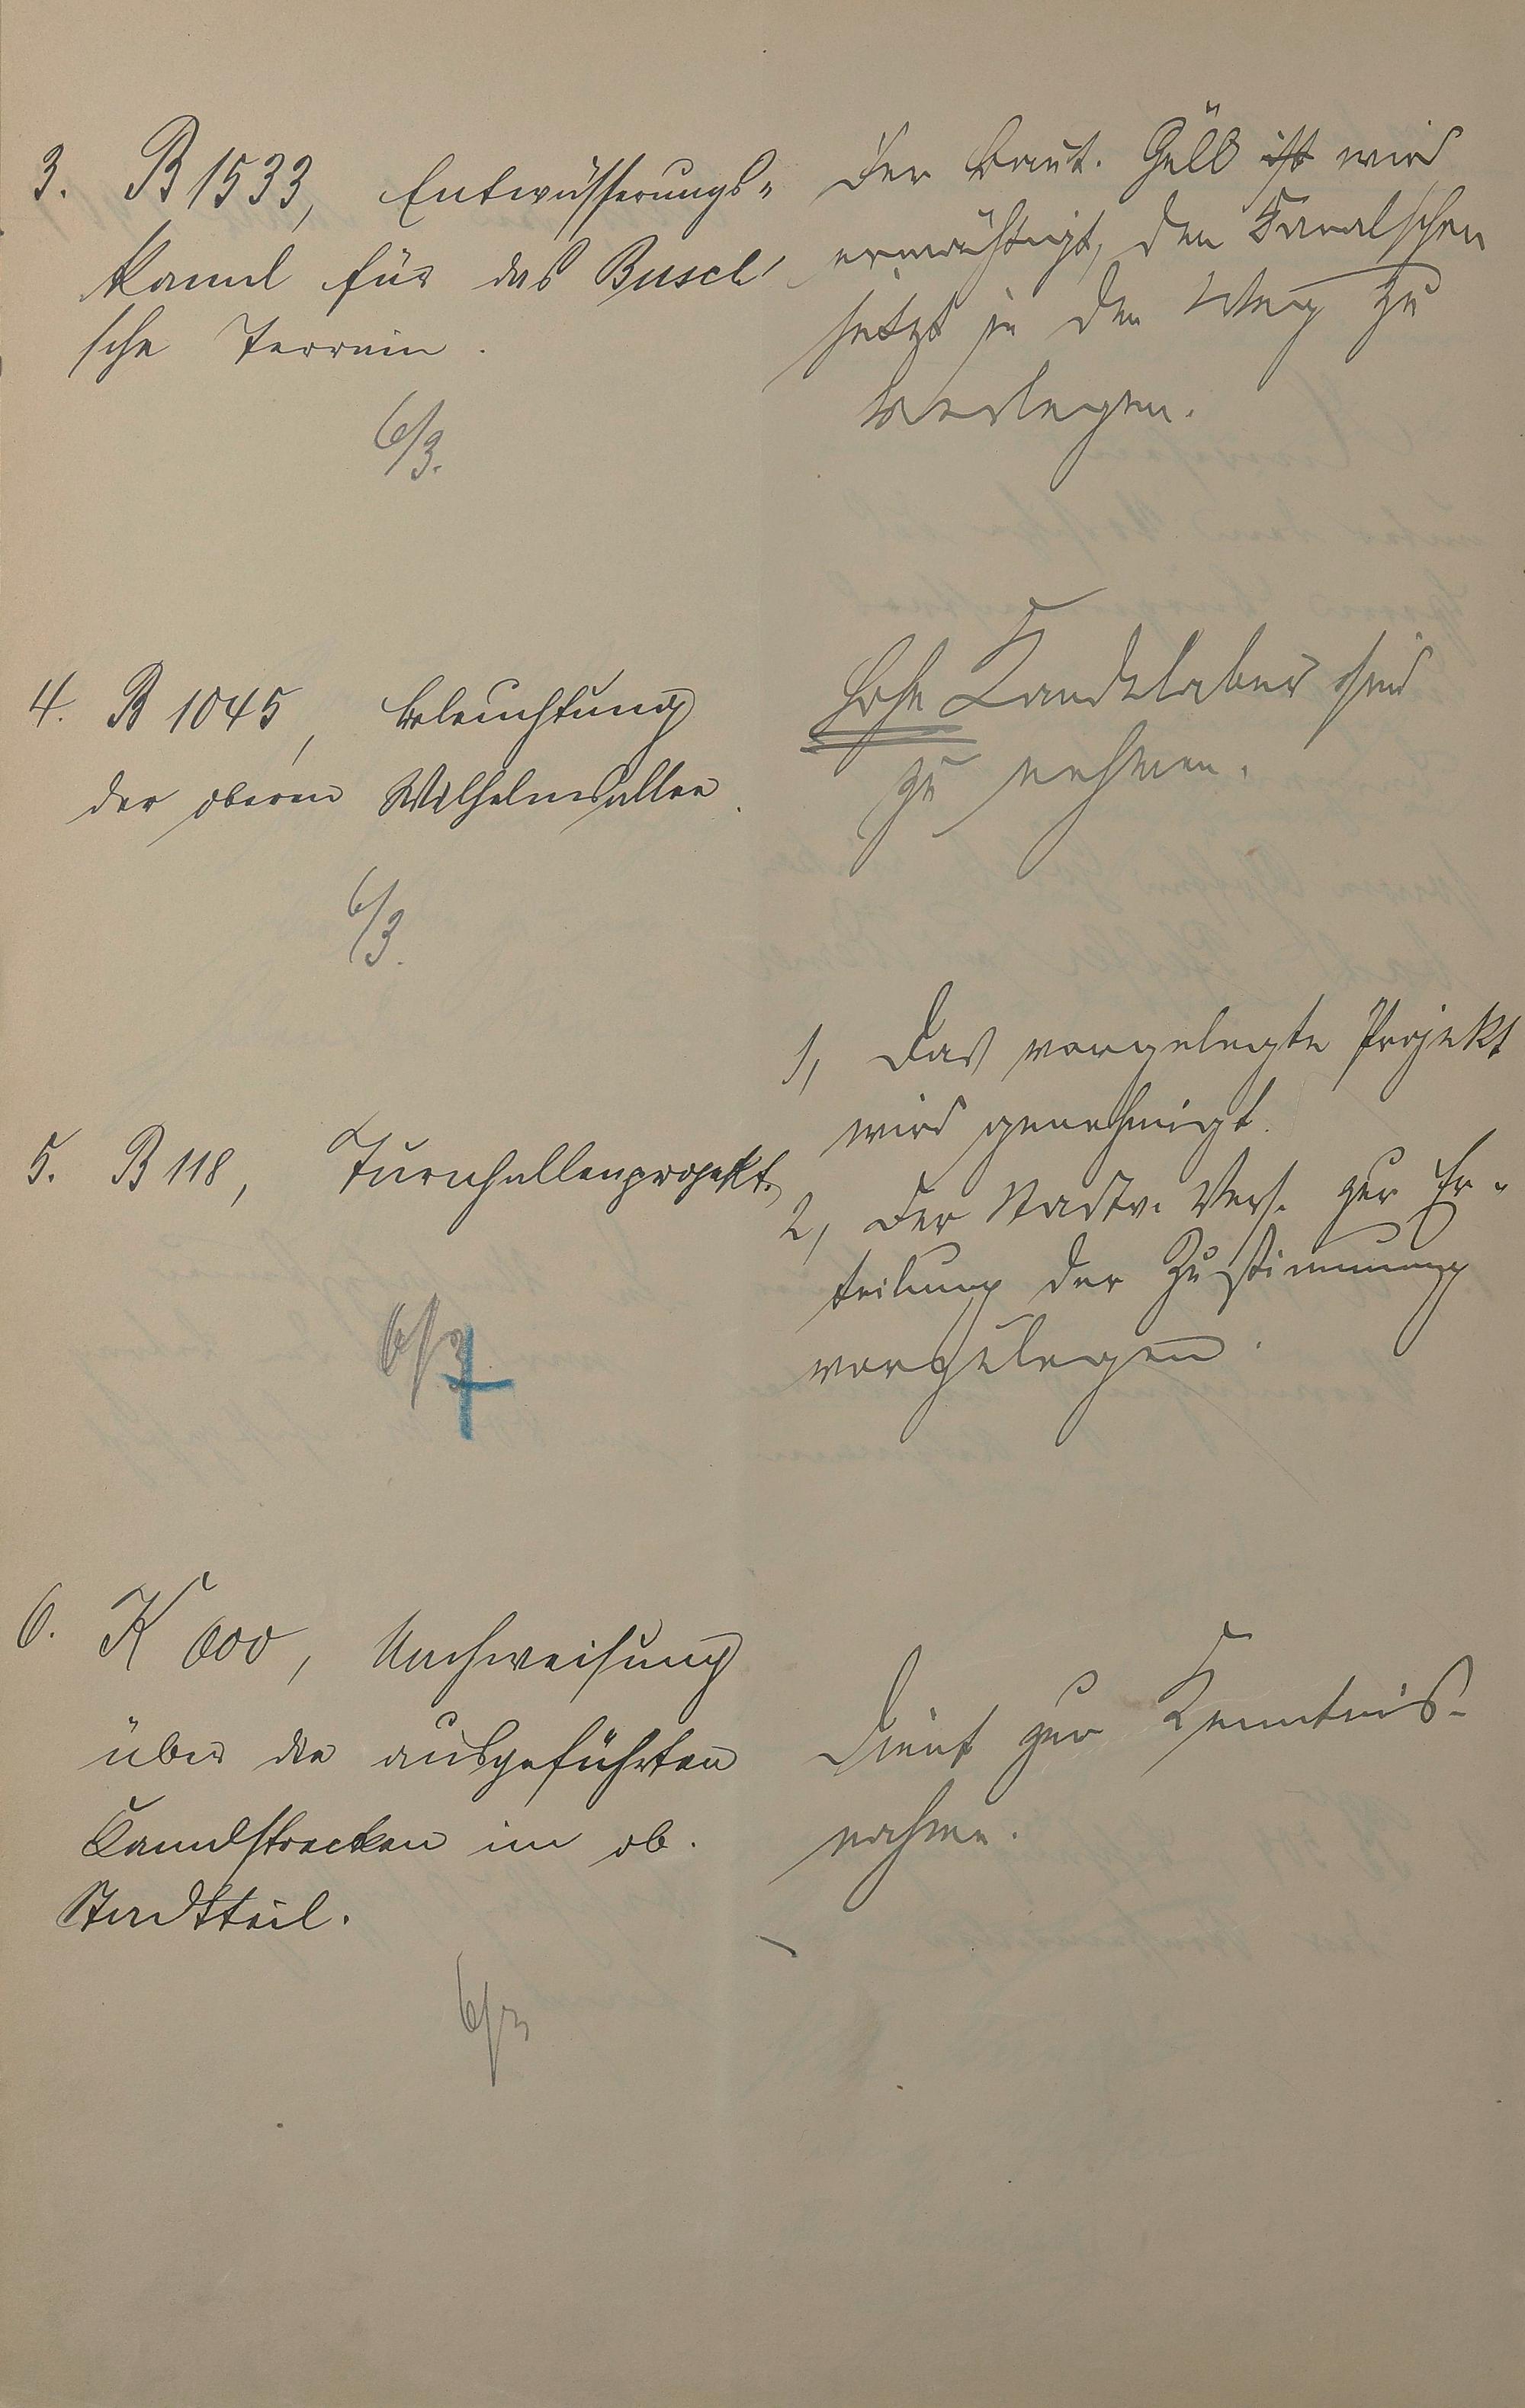 3. B 1533, Entwässerungs-
kanal für das Busch'
sche Terrain.
6/3.
Der Baut. Güll ist wird
ermächtigt, den Kanal schon
jetzt in den Weg zu
verlegen.
4. B 1045, Beleuchtung
der oberen Wilhelmsallee.
6/3.
Hohe Kandelaber sind
zu nehmen.
5. B 118, Turnhallenprojekt.
6/3
1, Das vorgelegte Projekt
wird genehmigt.
2, Der Stadtv. Vers. zur Er-
teilung der Zustimmung
vorzulegen.
6. K 600, Nachweisung
über die ausgeführten
Kanalstrecken im ob.
Stadtteil.
6/3
Dient zur Kenntnis-
nahme.